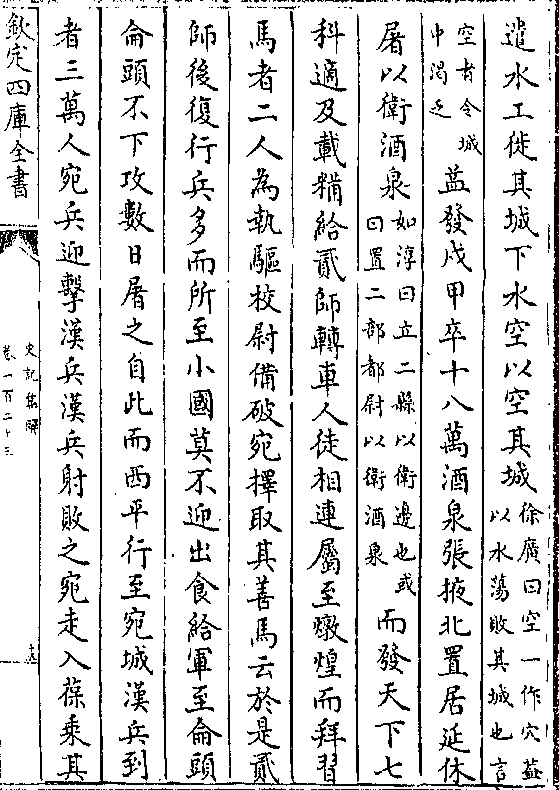 遣水工徙其城下水空以空其城徐廣曰空一作穴蓋以水蕩敗其城也言
空者令城中渴乏益發戍甲卒十八萬酒泉張掖北置居延休
屠以衛酒泉如淳曰立二縣以衛邊也或曰置二部都尉以衛酒泉而發天下七
科適及載糒給貳師轉車人徒相連屬至燉煌而拜習
馬者二人為執驅校尉備破宛擇取其善馬云於是貳
師後復行兵多而所至小國莫不迎出食給軍至侖頭
侖頭不下攻數日屠之自此而西平行至宛城漢兵到
者三萬人宛兵迎擊漢兵漢兵射敗之宛走入葆乘其
欽定四庫全書
史記集解
卷一百二十三